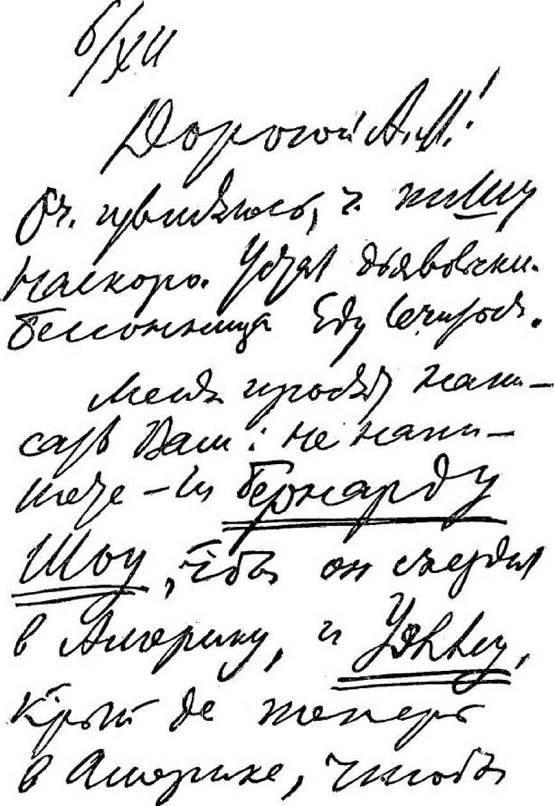 6/XII
Дорогой А. М.!
Оч. извиняюсь, ч. пишу
наскоро. Устал дьявольски.
Бессонница. Еду лечиться.
Меня просят напи-
сать Вам: не напи-
шете-ли Бернарду
Шоу, чтобы он съездил
в Америку, и Уэллсу,
крый де теперь
в Америке, чтобы